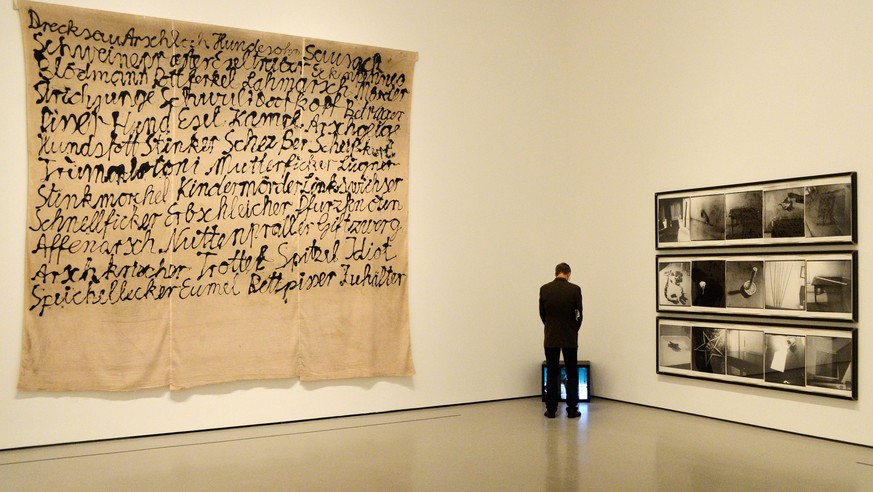 Drecksau Arschloch Hundesohn Sausack
Schweinepriester Eseltreiber
Blödmann Dottferkel Lahmarsch Mörder
Strichjunge Schwuli Doofkopf Betrüger
Hund Esel Kamel Arschgeige
Hundsfott Stinker Scheißer Scheißkerl
Mutterficker Lügner
Stinkmorchel Kindermörder Linkswichser
Schnellficker Erbschleicher
Affenarsch Nuttenpreller Giftzwerg
Arschkriecher Trottel Spitzel Idiot
Speichellecker Eumel Bettpisser Zuhälter